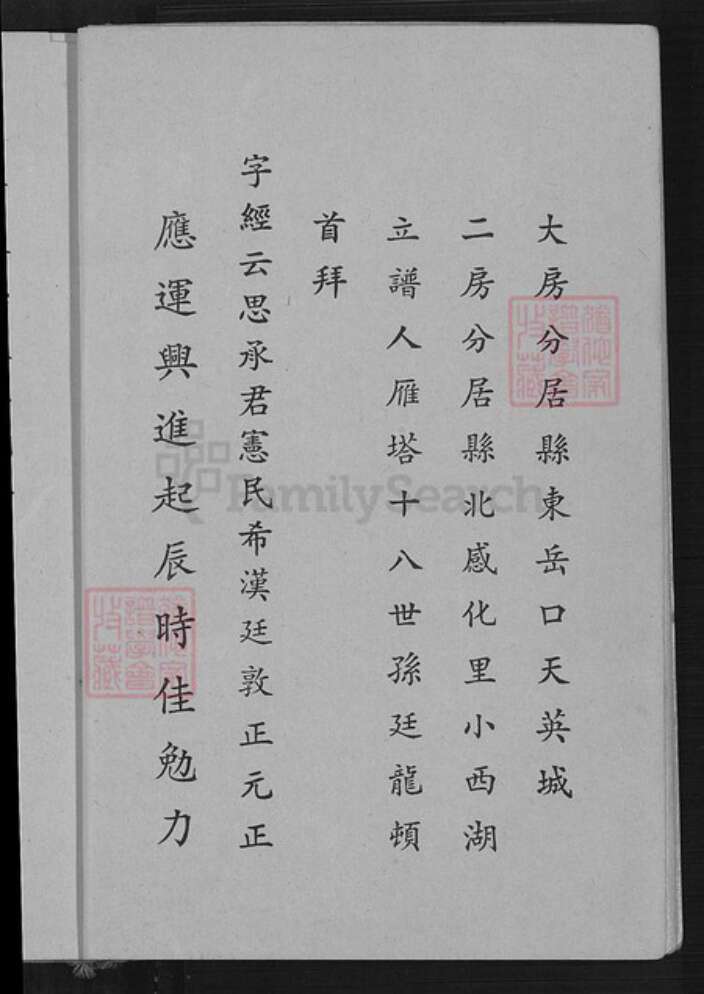 大房分居縣東岳口天英城
二房分居縣北感化里小西湖
立譜人雁塔十八世孫廷龍頓
首拜
字經云思承君憲民希漢廷敦正元正
應運興進起辰時佳勉力
FamilySearch